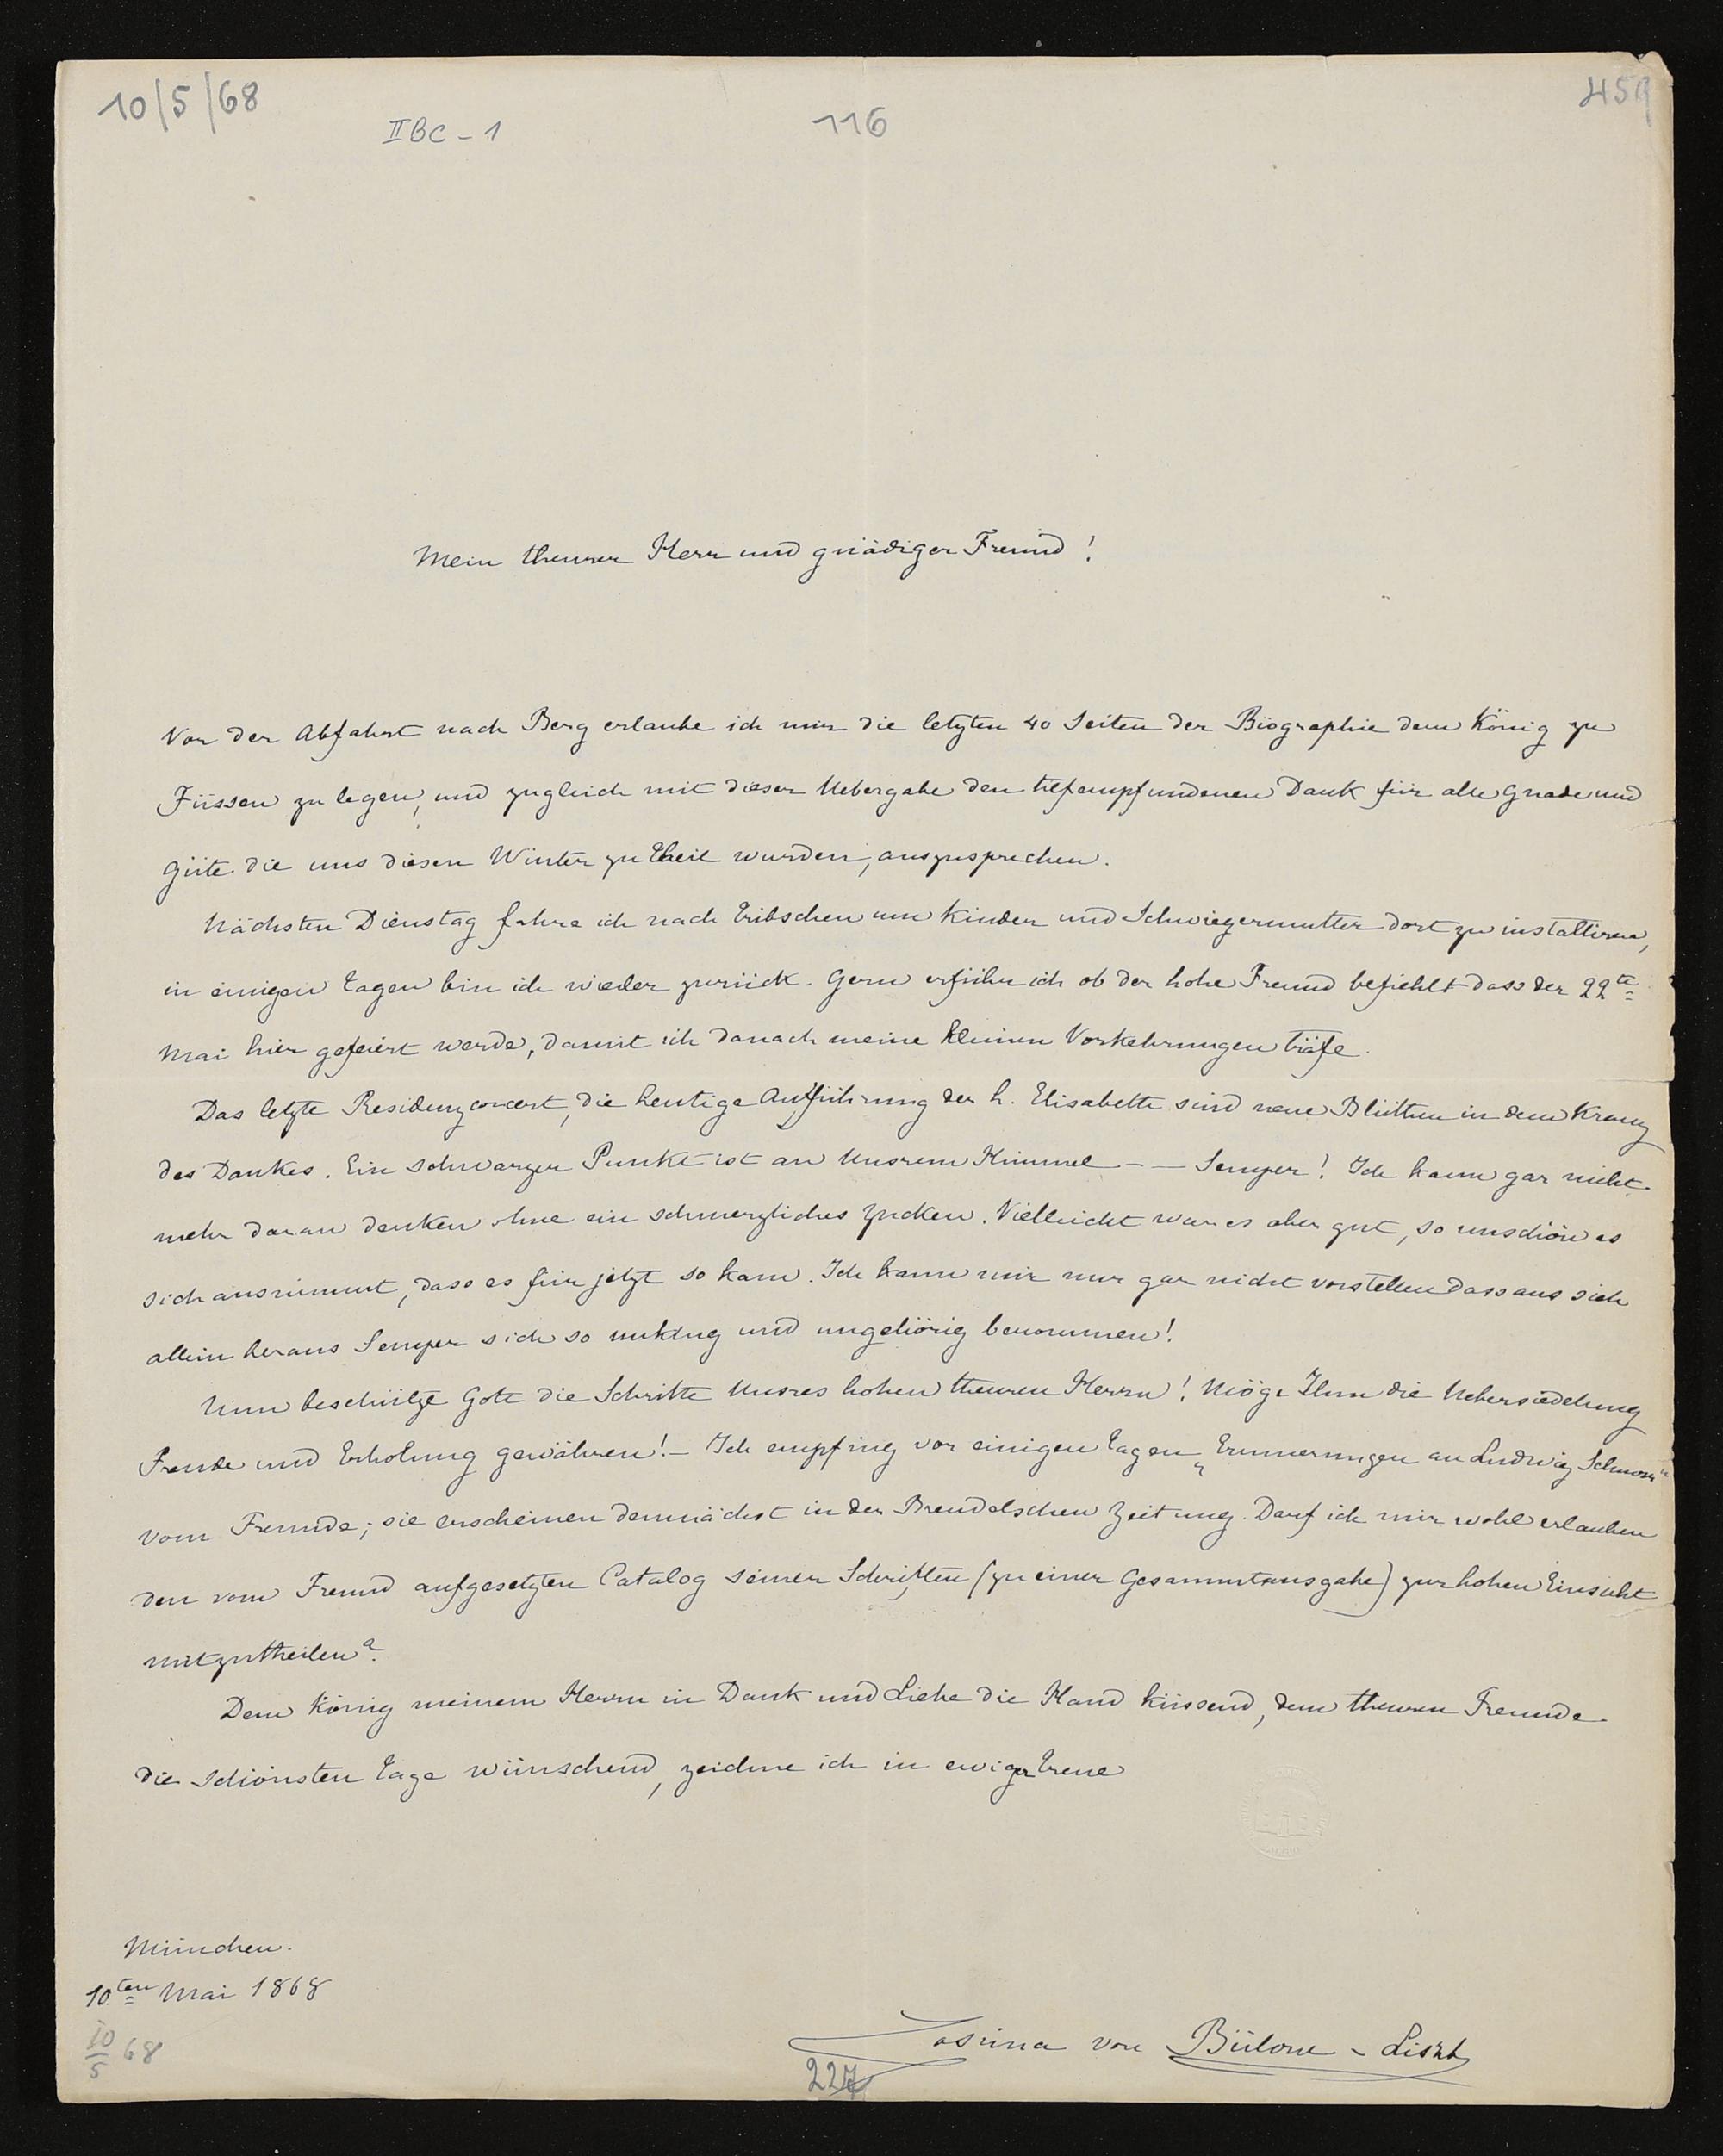 10/5/68
II BC - 1
116
459
Mein theurer Herr und gnädiger Freund!
Vor der Abfahrt nach Berg erlaube ich mir die letzten 40 Seiten der Biographie dem König zu
Füssen zu legen, und zugleich mit dieser Uebergabe den tiefempfundenen Dank für alle Gnade und
Güte die uns diesen Winter zu theil wurden, auszusprechen.
Nächsten Dienstag fahre ich nach Tribschen um Kinder und Schwiegermutter dort zu installiren,
in einigen Tagen bin ich wieder zurück. Gern erführ ich ob der hohe Freund befiehlt dass der 22te
Mai hier gefeiert werde, damit ich danach meine kleinen Vorkehrungen träfe.
Das letzte Residenzconcert, die heutige Aufführung der h. Elisabeth sind neue Blüthen in dem Kranz
des Dankes. Ein schwarzer Punkt ist an Unsrem Himmel - — Semper! Ich kann gar nicht
mehr daran denken ohne ein schmerzliches Zucken. Vielleicht war es aber gut, so unschön es
sich ausnimmt, dass es für jetzt so kam. Ich kann mir nur gar nicht vorstellen dass aus sich
allein heraus Semper sich so unklug und ungehörig benommen!
Nun beschütze Gott die Schritte Unsres hohen theuren Herrn! Möge Ihm die Uebersiedelung
Freude und Erholung gewähren! - Ich empfing vor einigen Tagen „Erinnerungen an Ludwig Schnorr“
vom Freunde; sie erscheinen demnächst in der Brendelschen Zeitung. Darf ich mir wohl erlauben
den vom Freund aufgesetzten Catalog seiner Schriften (zu einer Gesammtausgabe) zur hohen Einsicht
mitzutheilen?
Dem König meinem Herrn in Dank und Liebe die Hand küssend, dem theuren Freunde
die schönsten Tage wünschend, zeichne ich in ewiger Treue
München.
10ten Mai 1868
10/5 68
Cosima von Bülow - Liszt
227